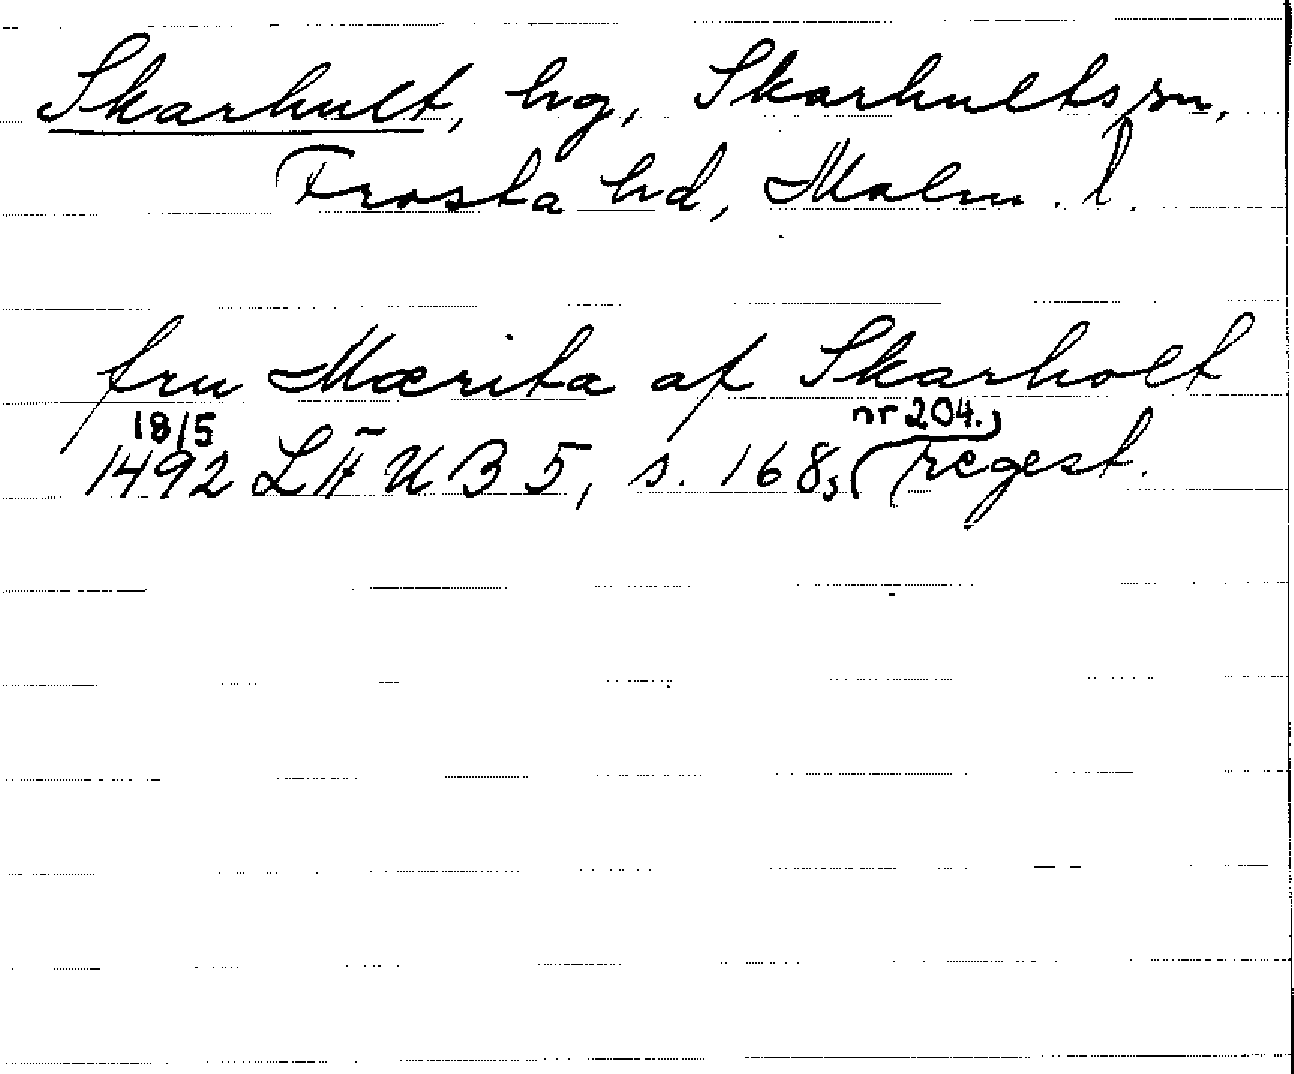 Skarhult, hg, Skarhults sn,
Frosta hd, Malm. l.
fru Mærita af Skarholt
18/5 nr 204.
1492 LÄUB 5, s. 168, (regest.